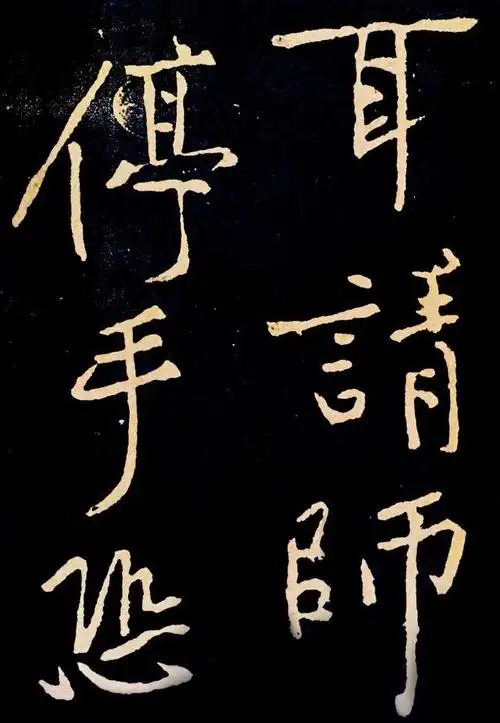 耳請師
停手恐